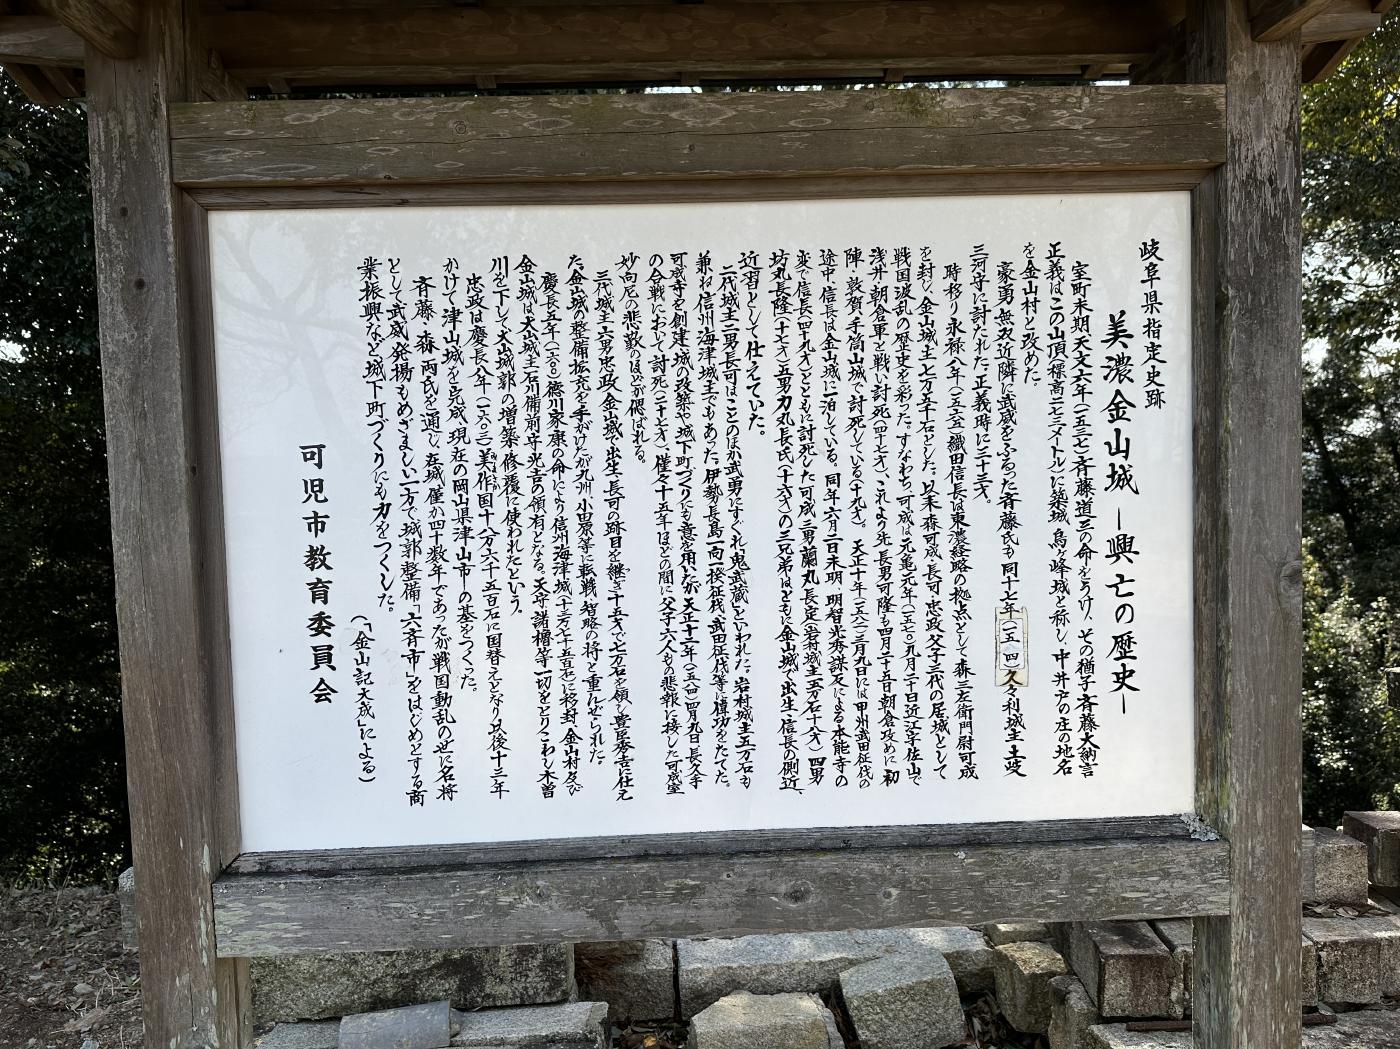 岐阜県指定史跡
美濃金山城 ―興亡の歴史―
室町末期天文六年(一五三七)斉藤道三の命をうけ、その猶子斉藤大納言
正義はこの山頂(標高二七三メートル)に築城、烏ヶ峰城と称し、中井戸の庄の地名
を金山村と改めた。
豪勇無双近隣に武威をふるった斉藤氏も同十七年(一五四八)久々利城主土岐
三河守に討たれた。正義時に三十三才。
時移り永禄八年(一五六五)織田信長は東濃経略の拠点として森三左衛門尉可成
を封じ金山城主七万五千石とした。以来森可成・長可・忠政父子三代の居城として
戦国波乱の歴史を彩った。すなわち可成は元亀元年(一五七〇)九月二十日近江宇佐山で
浅井・朝倉軍と戦い討死(四十七才)、これより先長男可隆も四月二十五日朝倉攻めに初
陣・敦賀・手筒山城で討死している(十九才)。天正十年(一五八二)三月九日には甲州武田征伐の
途中、信長は金山城に一泊している。同年六月二日未明、明智光秀謀反による本能寺の
変で信長(四十九才)とともに討死した可成三男蘭丸長定(岩村城主五万石十八才)四男
坊丸長隆(十七才)五男力丸長氏(十六才)の三兄弟はともに金山城で出生、信長の側近、
近習として仕えていた。
二代城主二男長可はことのほか武勇にすぐれ「鬼武蔵」といわれた。岩村城主五万石も
兼ね信州海津城主でもあった。伊勢長島一向一揆征伐、武田征伐等に偉功をたてた。
可成寺を創建、城の改築や城下町づくりにも意を用いたが天正十二年(一五八四)四月九日長久手
の合戦において討死(二十七才)、僅々十五年ほどの間に父子六人もの悲報に接した可成室
妙向尼の悲歎のほどが偲ばれる。
三代城主六男忠政、金山城で出生、長可の跡目を継ぎ十五才で七万石を領し豊臣秀吉に仕え
た。金山城の整備拡充を手がけたが九州、小田原等に転戦、智略の将と重んぜられた。
慶長五年(一六〇〇)徳川家康の命により信州海津城(十三万七千五百石)に移封、金山村及び
金山城は犬山城主石川備前守光吉の領有となる。天守、諸櫓等一切をとりこわし木曽
川を下して犬山城郭の増築・修覆に使われたという。
忠政は慶長八年(一六〇三)美作国十八万六千五百石に国替えとなり以後十三年
かけて津山城を完成、現在の岡山県津山市の基をつくった。
斉藤、森両氏を通じ在城僅か四十数年であったが戦国動乱の世に名将
として武威発揚もめざましい一方で城郭整備「六斉市」をはじめとする商
業振興など城下町づくりにも力をつくした。
(「金山記大成」による)
可児市教育委員会